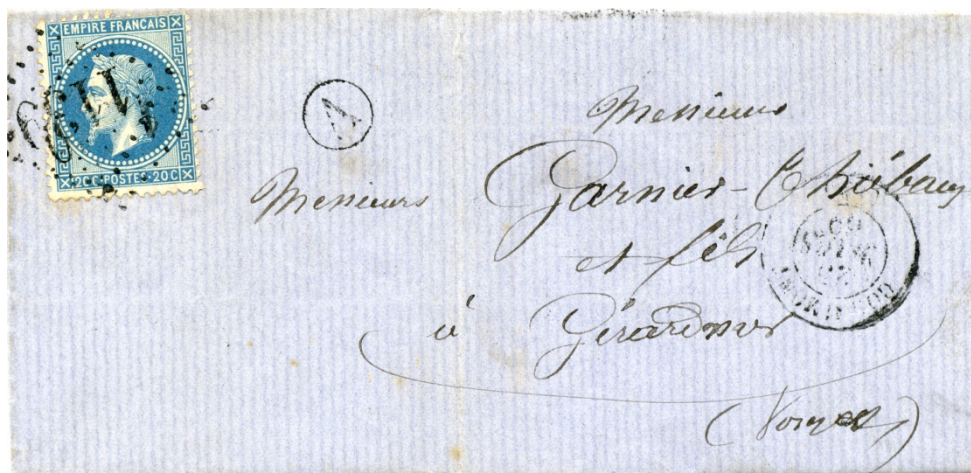 EMPIRE FRANÇAIS
20 C POSTES 20 C
A
Messieurs
Messieurs
Garnier-Thiébaux
et fils
à Gérardmer
(Vosges)